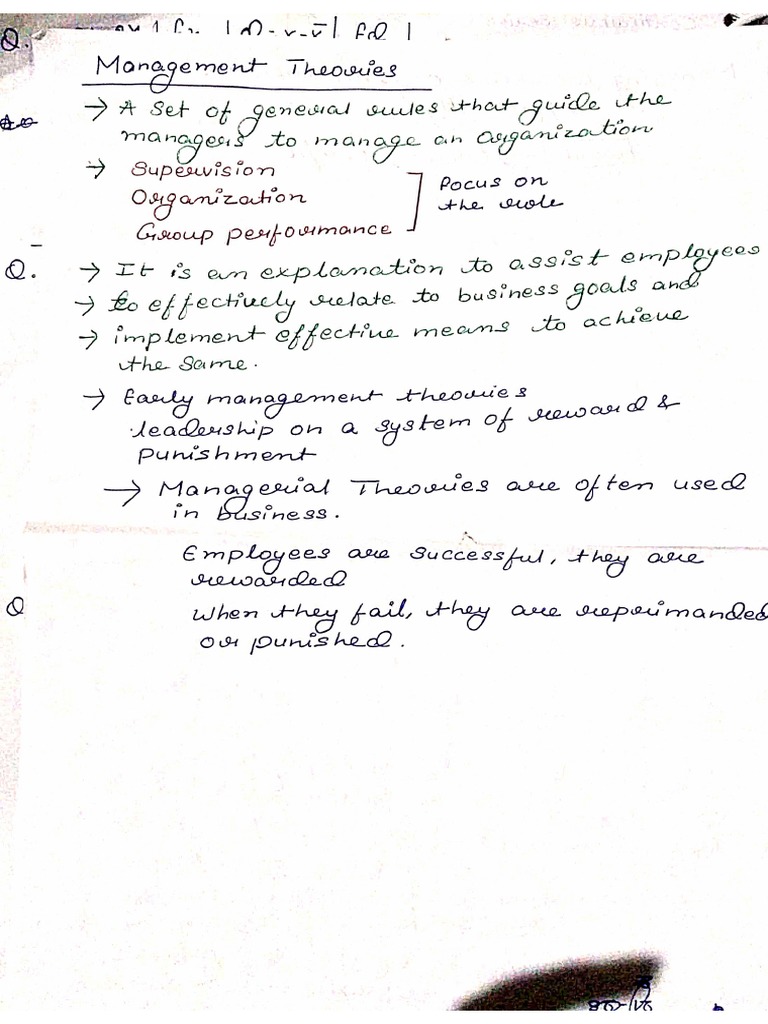 Q.
Management Theories
→ A set of general rules that guide the
managers to manage an organization
→ Supervision
Organization
Group performance
Focus on
the role
Q. → It is an explanation to assist employees
→ to effectively relate to business goals and
→ implement effective means to achieve
the same.
→ Early management theories
leadership on a system of reward &
punishment
→ Managerial Theories are often used
in business.
Employees are successful, they are
rewarded
Q when they fail, they are reprimanded
or punished.